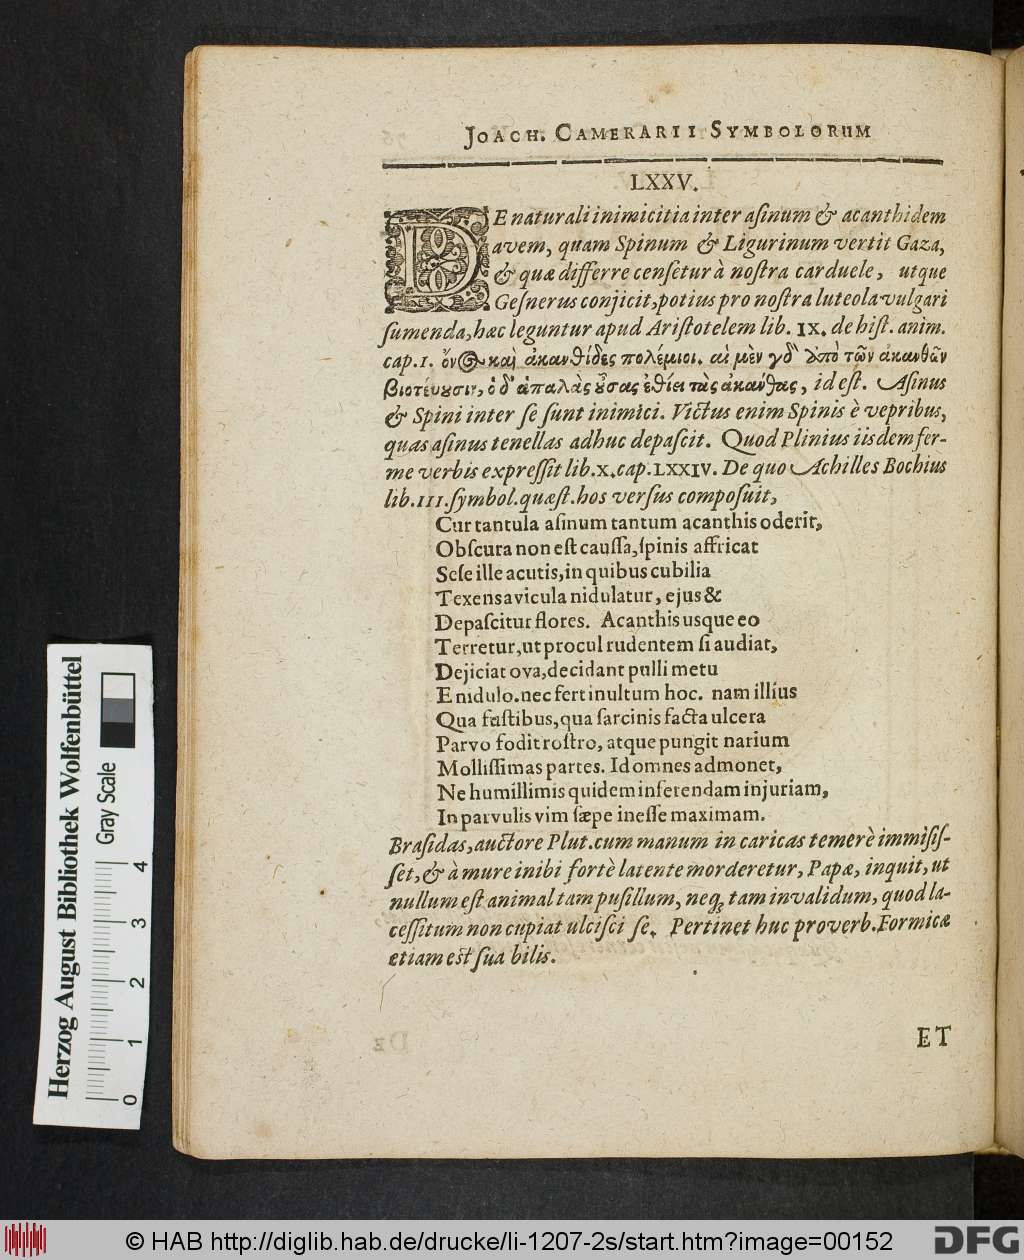 JOACH. CAMERARII SYMBOLORUM
LXXV.
DE naturali inimicitia inter asinum & acanthidem
avem, quam Spinum & Ligurinum vertit Gaza,
& quæ differre censetur à nostra carduele, utque
Gesnerus conjicit, potius pro nostra luteola vulgari
sumenda, hæc leguntur apud Aristotelem lib. IX. de hist. anim.
cap. I. ὄνος καὶ ἀκανθίδες πολέμιοι. αἱ μὲν γδ ἀπὸ τῶν ἀκανθῶν
βιοτεύουσιν, ὁ δ' ἁπαλὰς οὔσας ἐθίει τὰς ἀκάνθας, id est. Asinus
& Spini inter se sunt inimici. Victus enim Spinis è vepribus,
quas asinus tenellas adhuc depascit. Quod Plinius iisdem fer-
me verbis expressit lib. X. cap. LXXIV. De quo Achilles Bochius
lib. III. symbol. quæst. hos versus composuit,
Cur tantula asinum tantum acanthis oderit,
Obscura non est caussa, spinis affricat
Sese ille acutis, in quibus cubilia
Texens avicula nidulatur, ejus &
Depascitur flores. Acanthis usque eo
Terretur, ut procul rudentem si audiat,
Dejiciat ova, decidant pulli metu
E nidulo. nec fert inultum hoc. nam illius
Qua fustibus, qua sarcinis facta ulcera
Parvo fodit rostro, atque pungit narium
Mollissimas partes. Id omnes admonet,
Ne humillimis quidem inferendam injuriam,
In parvulis vim sæpe inesse maximam.
Brasidas, auctore Plut. cum manum in caricas temerè immisis-
set, & à mure inibi fortè latente morderetur, Papæ, inquit, ut
nullum est animal tam pusillum, neq; tam invalidum, quod la-
cessitum non cupiat ulcisci se. Pertinet huc proverb. Formicæ
etiam est sua bilis.
ET
Herzog August Bibliothek Wolfenbüttel
Gray Scale
0 1 2 3 4
© HAB http://diglib.hab.de/drucke/li-1207-2s/start.htm?image=00152
DFG